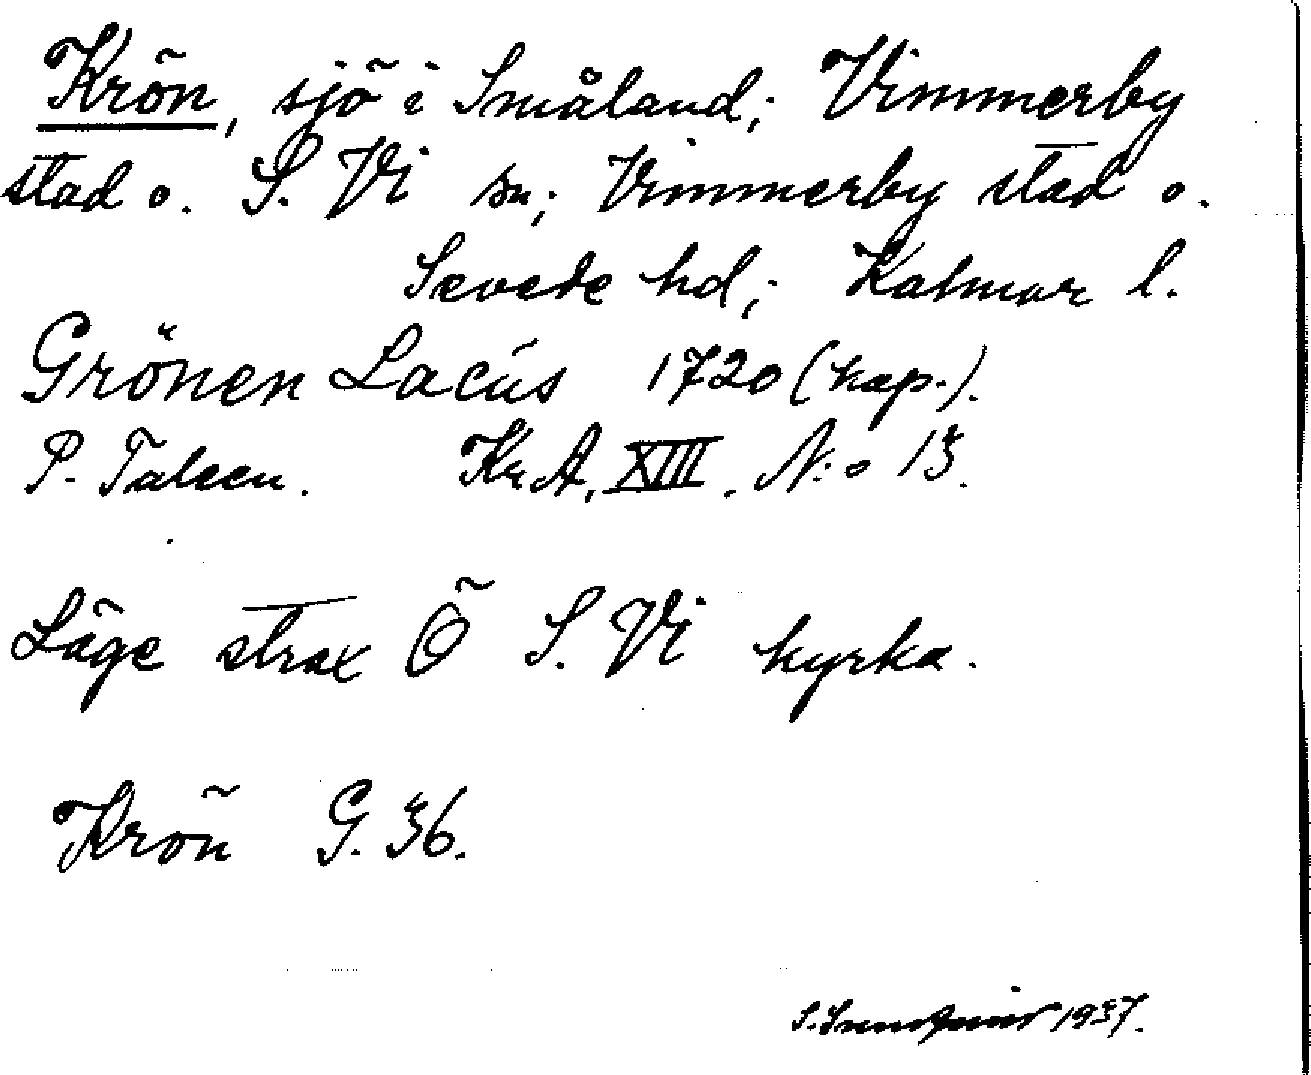 Krön, sjö i Småland; Vimmerby
stad o. S. Vi sn; Vimmerby stad o.
Sevede hd; Kalmar l.
Grönen Lacus 1720 (kop.).
P. Taleen. Kr A, XIII, N:o 13.
Läge strax Ö S. Vi kyrka.
Krön G. 36.
1937.